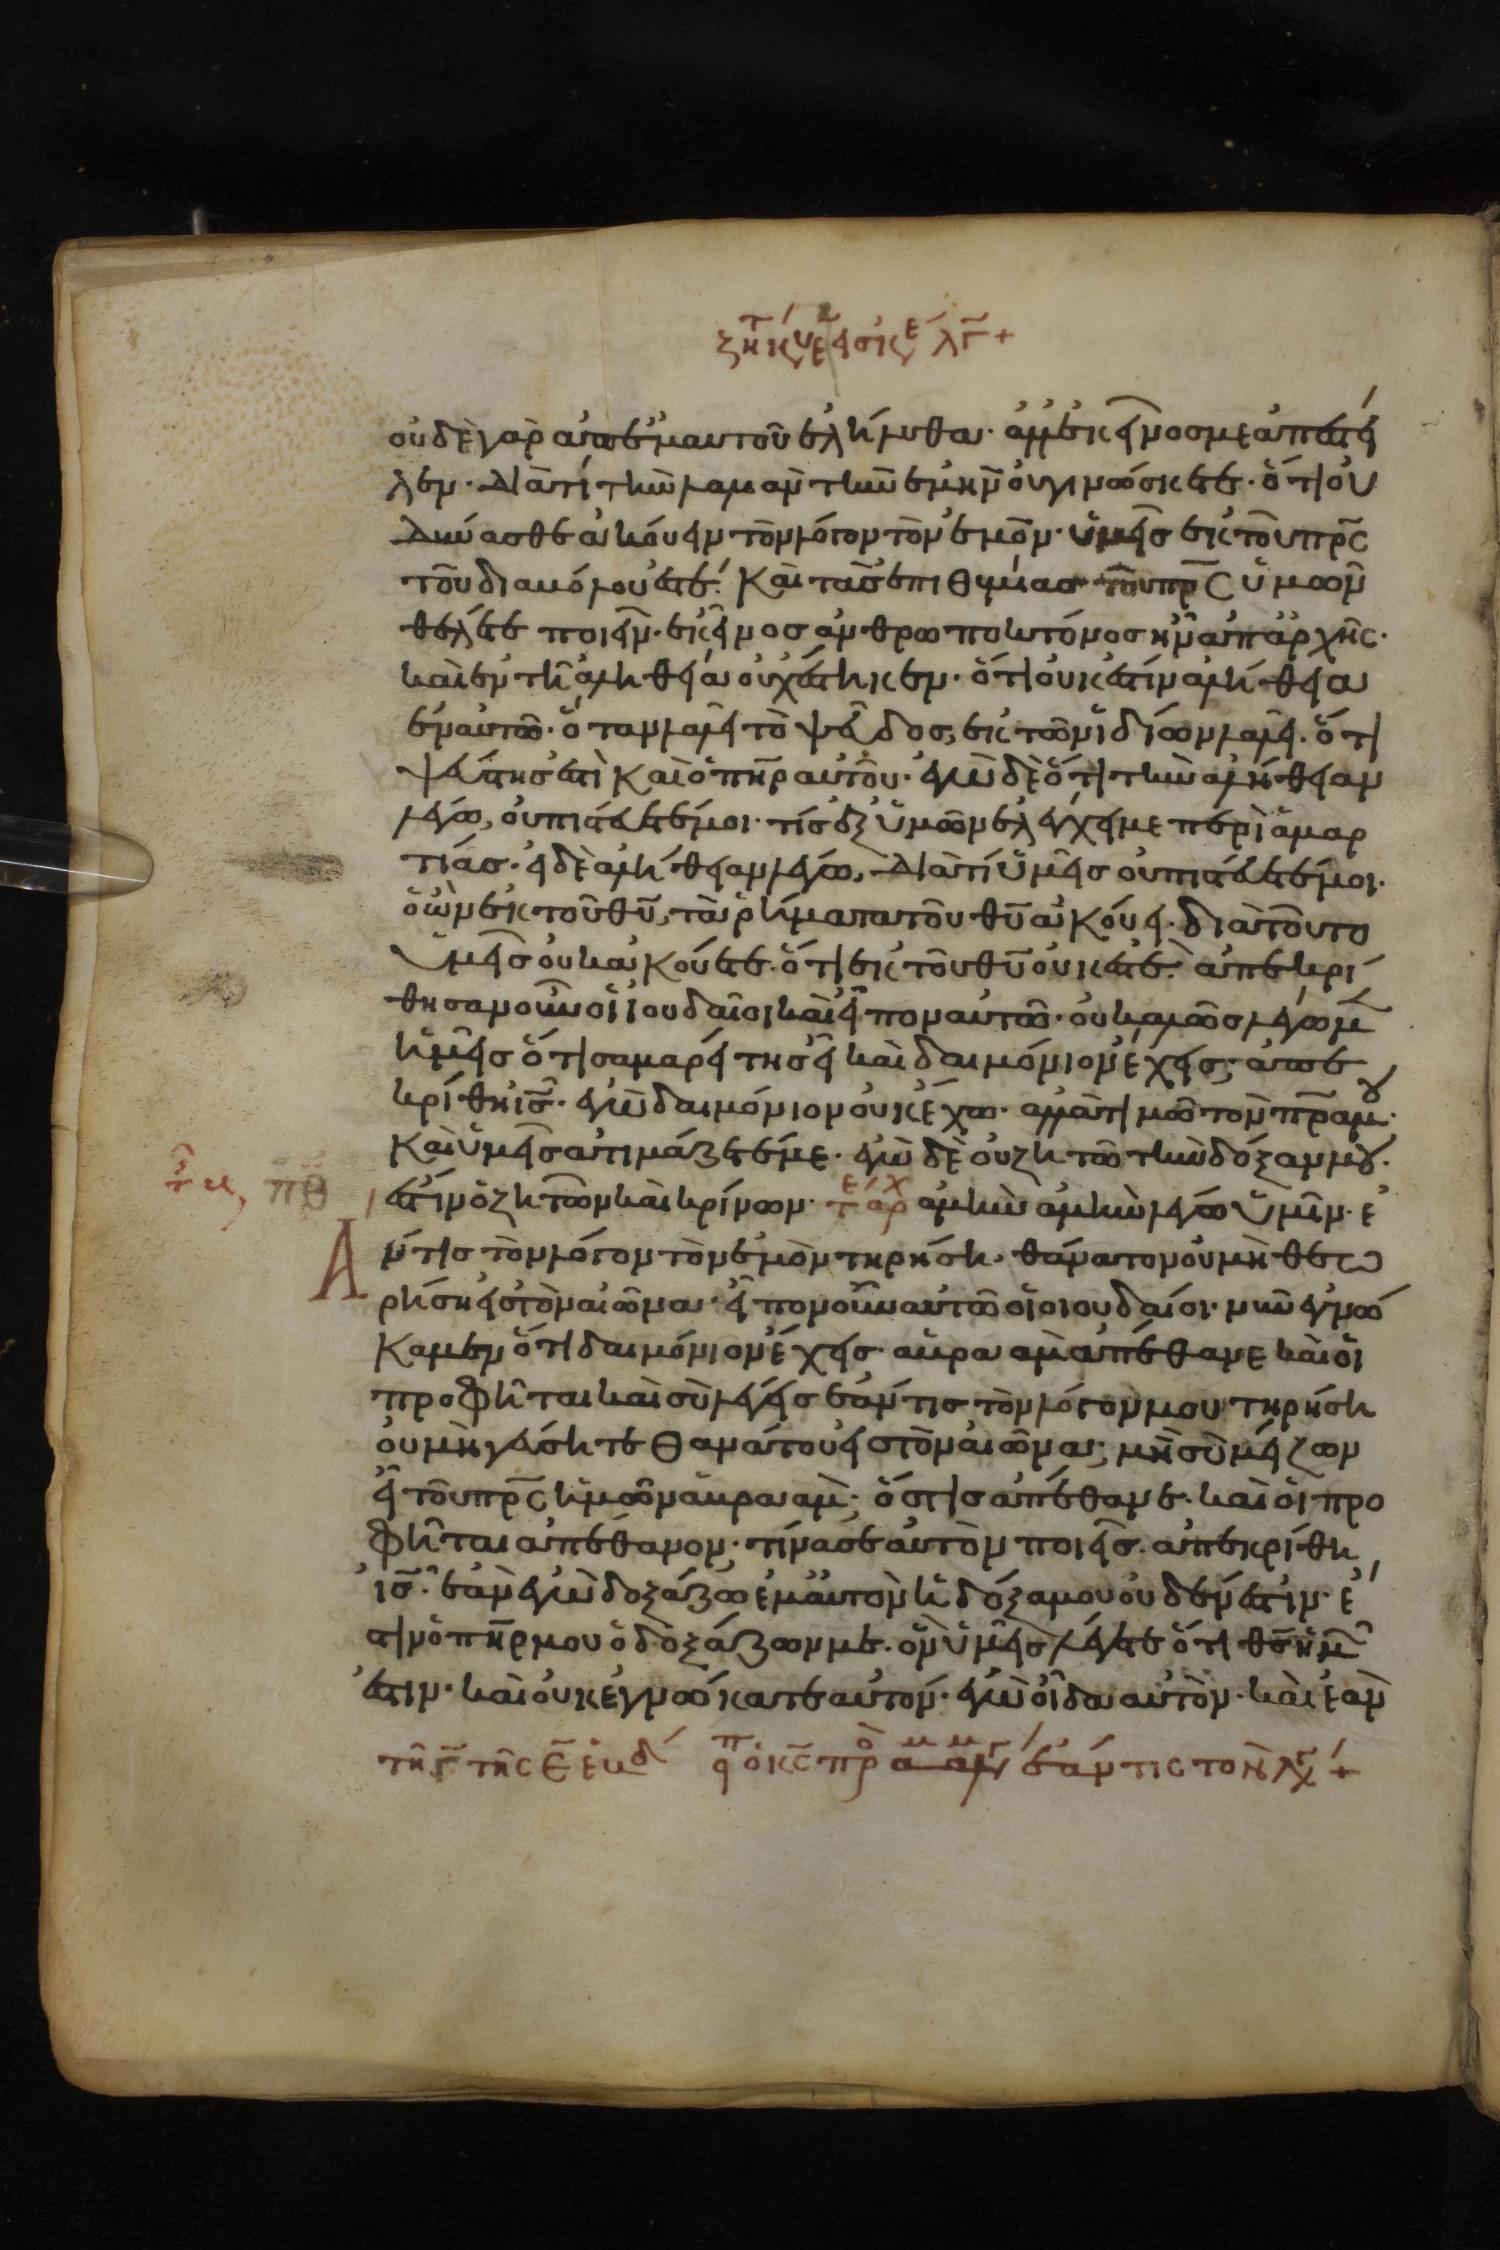 οὐδὲ γὰρ ἀπ ἐμαυτοῦ ἐλήλυθα· ἀλλ ἐκεῖνος με ἀπέστει
λεν· διατί τὴν λαλιὰν τὴν ἐμὴν οὐ γινώσκετε· ὅτι οὐ
δύνασθε ἀκούειν τὸν λόγον τὸν ἐμόν· ὑμεῖς ἐκ τοῦ πρς
τοῦ διαβόλου ἐστέ· Καὶ τὰς ἐπιθυμίας τοῦ πρς ὑμῶν
θέλετε ποιεῖν· ἐκεῖνος ἀνθρωποκτόνος ἦν ἀπ ἀρχῆς·
καὶ ἐν τῆ ἀληθεία οὐχ ἕστηκεν· ὅτι οὐκ ἔστιν ἀλήθεια
ἐν αὐτῶ· ὅταν λαλεῖ τὸ ψεῦδος, ἐκ τῶν ἰδίων λαλεῖ· ὅτι
ψεύστης ἐστὶ Καὶ ὁ πηρ αὐτοῦ· ἐγὼ δὲ ὅτι τὴν ἀλήθειαν
λέγω, οὐ πιστεύετέ μοι· τίς ἐξ ὑμῶν ἐλέγχει με περὶ ἁμαρ
τίας· εἰ δὲ ἀλήθειαν λέγω, διατί ὑμεῖς οὐ πιστεύετέ μοι·
ὁ ὢν ἐκ τοῦ θυ, τὰ ῥήματα τοῦ θυ ἀκούει· διὰ τοῦτο
ὑμεῖς οὐκ ἀκούετε· ὅτι ἐκ τοῦ θυ οὐκ ἐστέ· ἀπεκρί
θησαν οὖν οἱ ἰουδαῖοι καὶ εἶπον αὐτῶ· οὐ καλῶς λέγωμν
ἡμεῖς ὅτι σαμαρείτης εἶ καὶ δαιμόνιον ἔχεις; ἀπε
κρίθη ις· ἐγὼ δαιμόνιον οὐκ ἔχω· ἀλλὰ τιμῶ τὸν πρα μου·
Καὶ ὑμεῖς ἀτιμάζετέ με· ἐγὼ δὲ οὐ ζητῶ τὴν δόξαν μου·
ἔστιν ὁ ζητῶν καὶ κρίνων· ἀμὴν ἀμὴν λέγω ὑμῖν· ἐ
άν τις τὸν λόγον τὸν ἐμὸν τηρήση· θάνατον οὐ μὴ θεω
ρήση εἰς τὸν αἰῶνα· εἶπον οὖν αὐτῶ οἱ ιουδαίοι· νῦν ἐγνώ
καμεν ὅτι δαιμόνιον ἔχεις· ἀβραὰμ ἀπέθανε καὶ οἱ
προφῆται καὶ σὺ λέγεις ἐάν τις τὸν λόγον μου τηρήση
οὐ μὴ γεύσητε θανάτου εἰς τὸν αἰῶνα; μὴ σὺ μείζων
εἶ τοῦ πρς ἡμῶν ἀβραάμ· ὅστις ἀπέθανε· καὶ οἱ προ
φῆται ἀπέθανον· τίνα σεαυτὸν ποιεῖς· ἀπεκρίθη
ις· ἐὰν ἐγὼ δοξάζω ἐμαυτὸν ἡ δόξα μου οὐδέν ἐστιν· ἔ
στιν ὁ πηρ μου ὁ δοξάζων με· ὃν ὑμεῖς λέγετε ὅτι θς ἡμῶν
ἐστιν· καὶ οὐκ ἐγνώκατε αὐτόν· ἐγὼ οἶδα αὐτὸν· καὶ ἐὰν